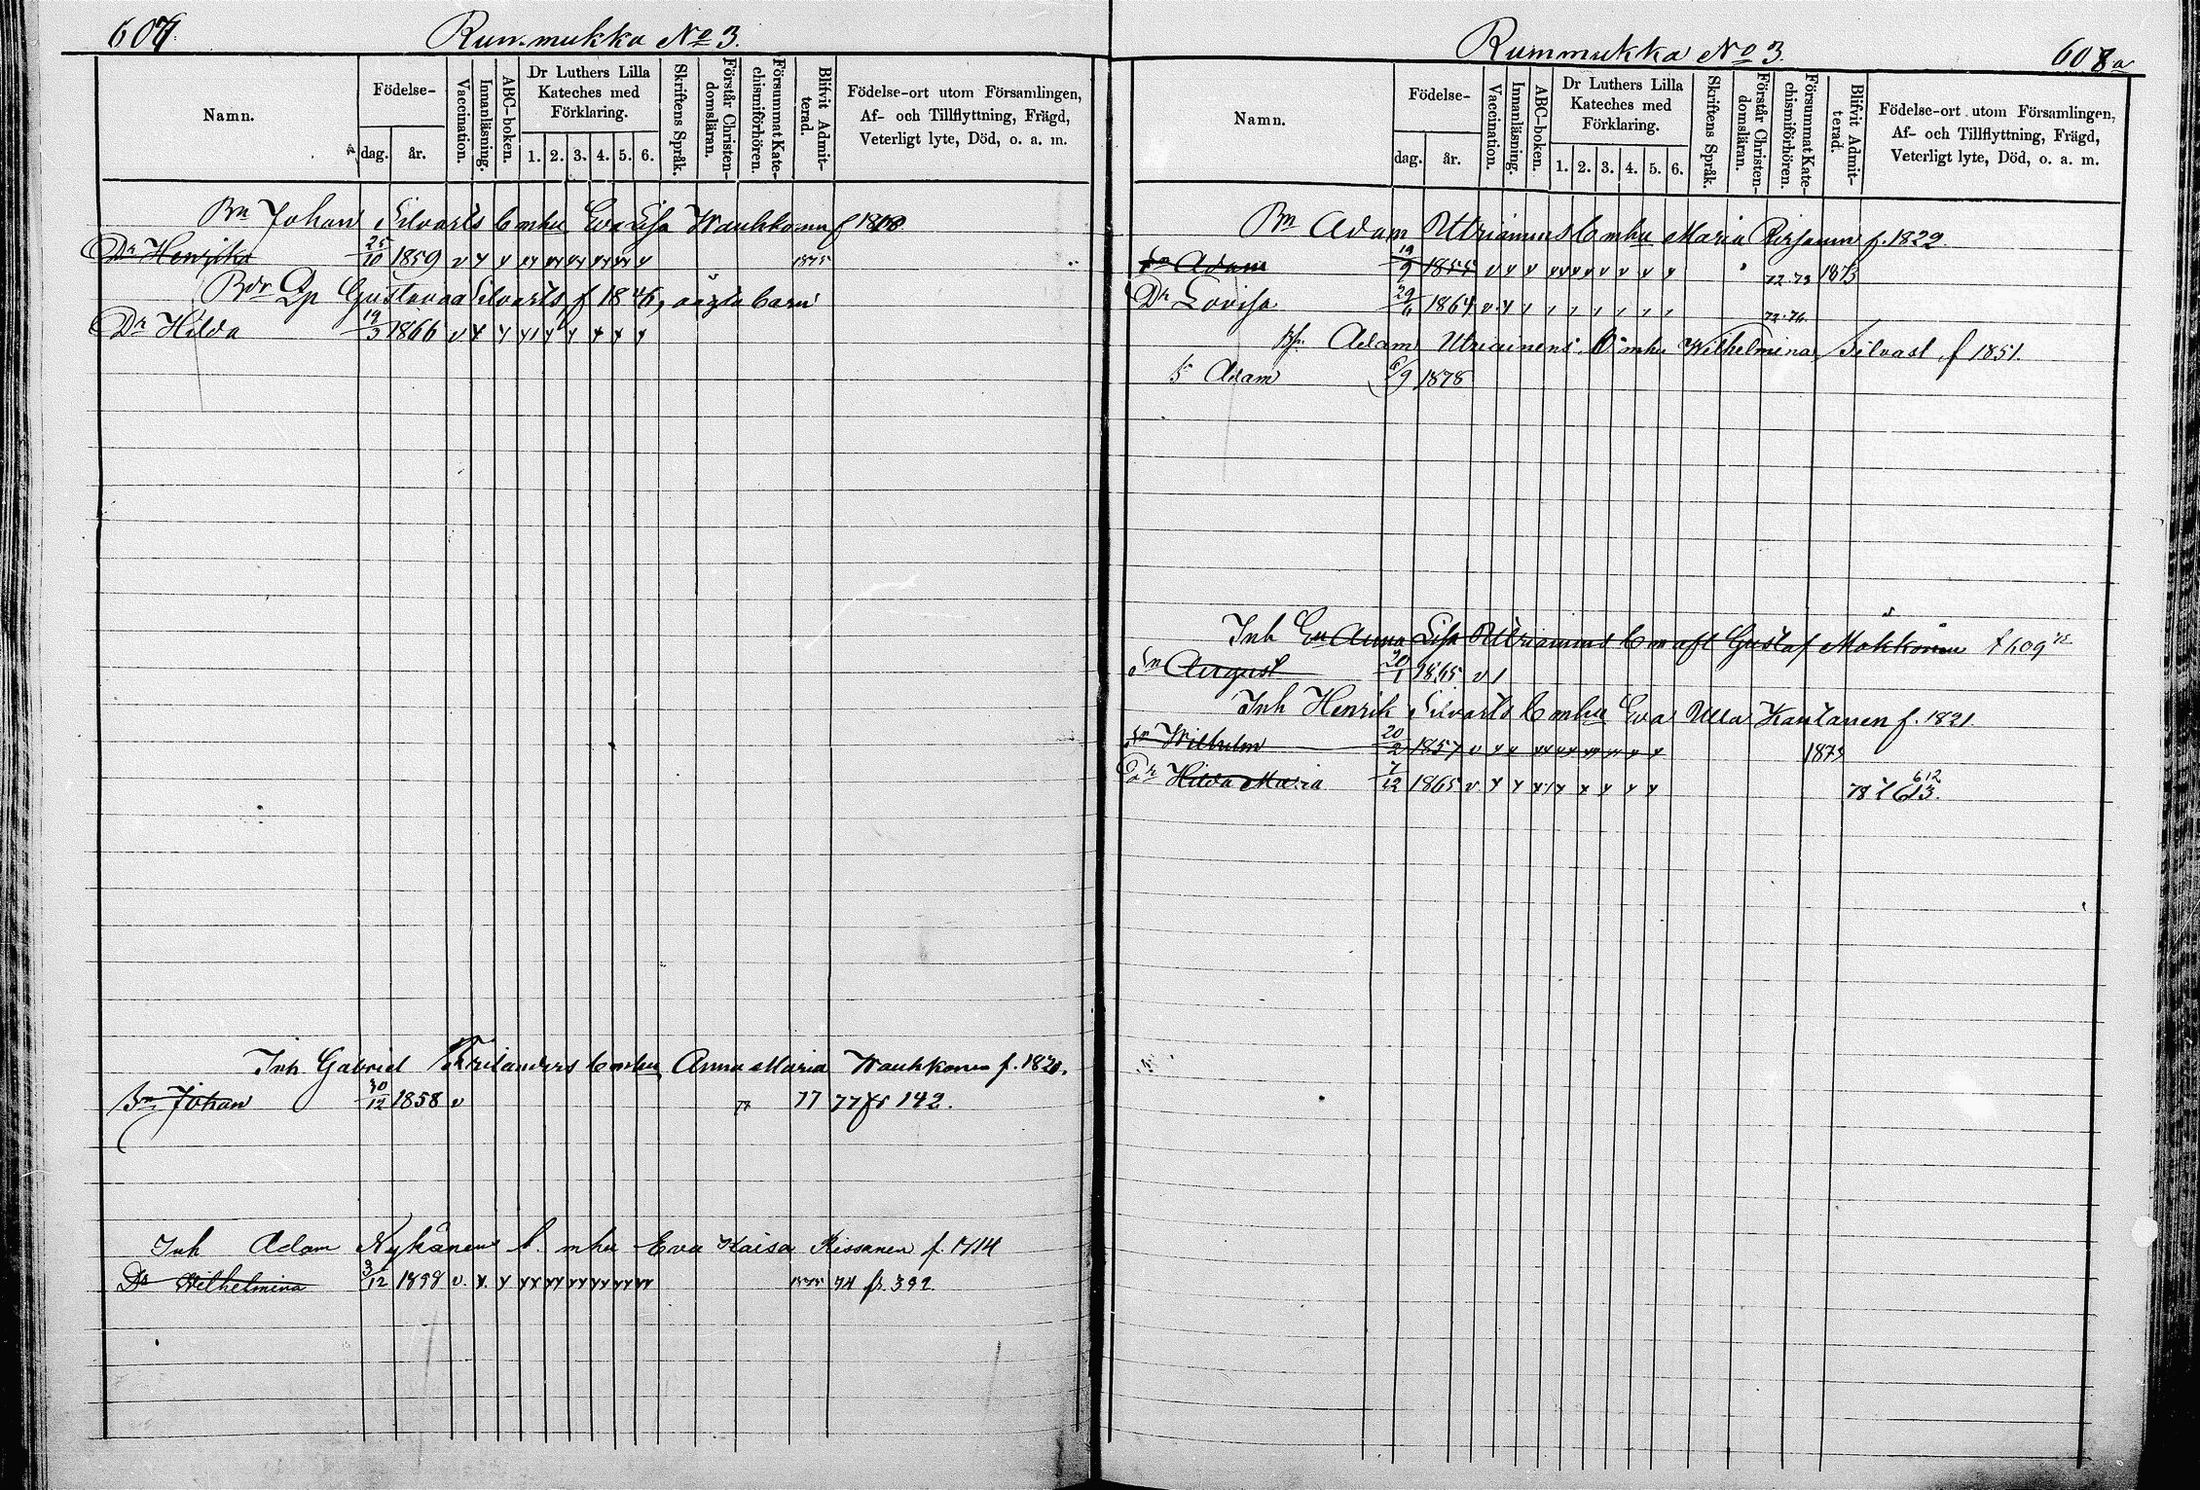 607
Rummukka No 3.
Namn.
Födelse-
dag.
år.
Vaccination.
Innanläsning.
ABC-boken.
Dr Luthers Lilla
Kateches med
Förklaring.
1. 2. 3. 4. 5. 6.
Skriftens Språk.
Förstår Christen-
domsläran.
Försummat Kate-
chismiförhören.
Blifvit Admit-
terad.
Födelse-ort utom Församlingen,
Af- och Tillflyttning, Frägd,
Veterligt lyte, Död, o. a. m.
Bn Johan Silvasts b m hu Eva Lisa Wauhkonen f
Dr Henrika 25/10 1859 v 1875
Gustava Silvasts f 1846, oägta barn
Dr Hilda 19/3 1866 v
Inh Gabriel b m hu Anna Maria Wauhkonen f. 1820.
Sn Johan 30/12 1858 v 77 77 fr 142.
Inh Adam Nykänens b. m hu Eva Kaisa Rissanen f. 1714
Dr Wilhelmina 3/12 1858 v. 1875 74 fr. 392.
Rummukka No 3.
608a
Namn.
Födelse-
dag.
år.
Vaccination.
Innanläsning.
ABC-boken.
Dr Luthers Lilla
Kateches med
Förklaring.
1. 2. 3. 4. 5. 6.
Skriftens Språk.
Förstår Christen-
domsläran.
Försummat Kate-
chismiförhören.
Blifvit Admit-
terad.
Födelse-ort utom Församlingen,
Af- och Tillflyttning, Frägd,
Veterligt lyte, Död, o. a. m.
Bn Adam Utriainens b m hu Maria f. 1822.
Sn Adam 19/9 1855 v 72.73 1873
Dr Lovisa 29/6 1864 v
Adam Utriainens b m hu Wilhelmina Silvast f 1851.
S Adam 6/9 1878
Inh Anna Lisa Utriainens b m aft Gustaf Mökkönen t 609
Sn August 20/1 1865 v
Inh Henrik Silvasts b m hu Eva Ulla Kantanen f. 1821.
Sn Wilhelm 20/2 1857 v 1873
Dr Hilda Maria 7/12 1865 v 78 t 613.
612